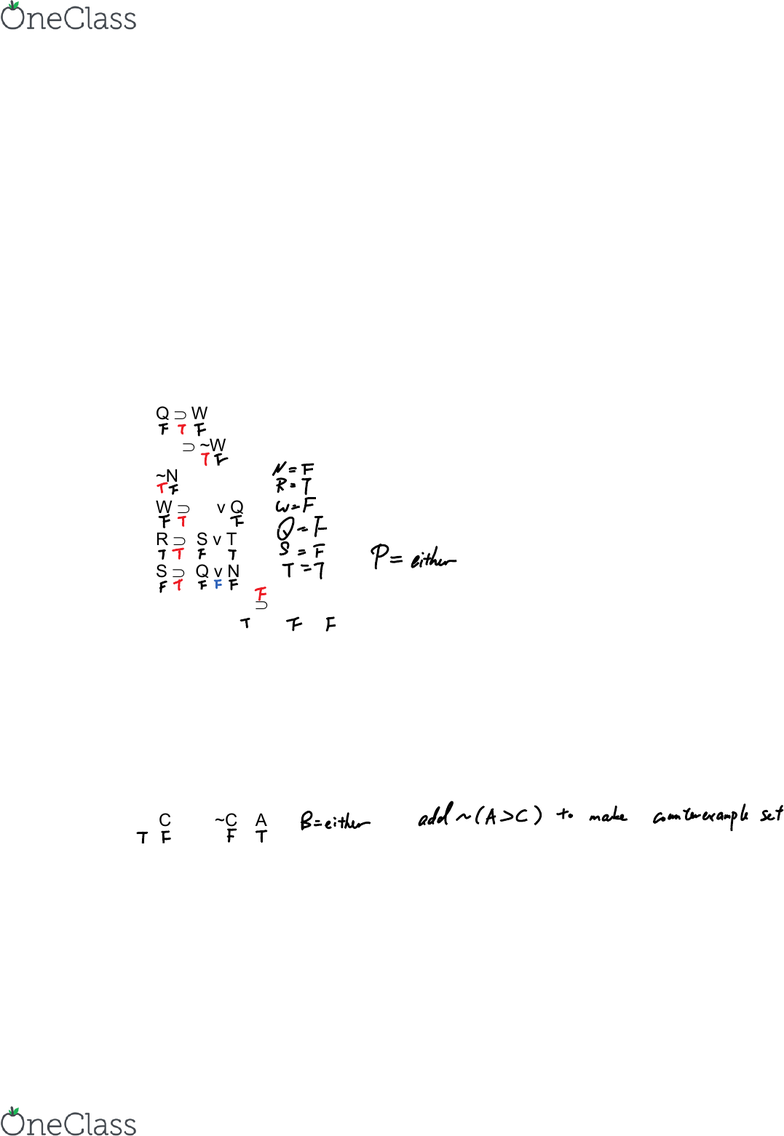 OneClass
Q ⊃ W
F T F
⊃ ~W
T F
~N
T F
N = F
R = T
W ⊃ v Q
F T F
W = F
Q = F
R ⊃ S v T
T T F T
S = F
P = either
S ⊃ Q v N
F T F F F
T = T
F
⊃
T F F
C ~C A
T F F T
B = either
add ~(A > C) to make counterexample set
OneClass